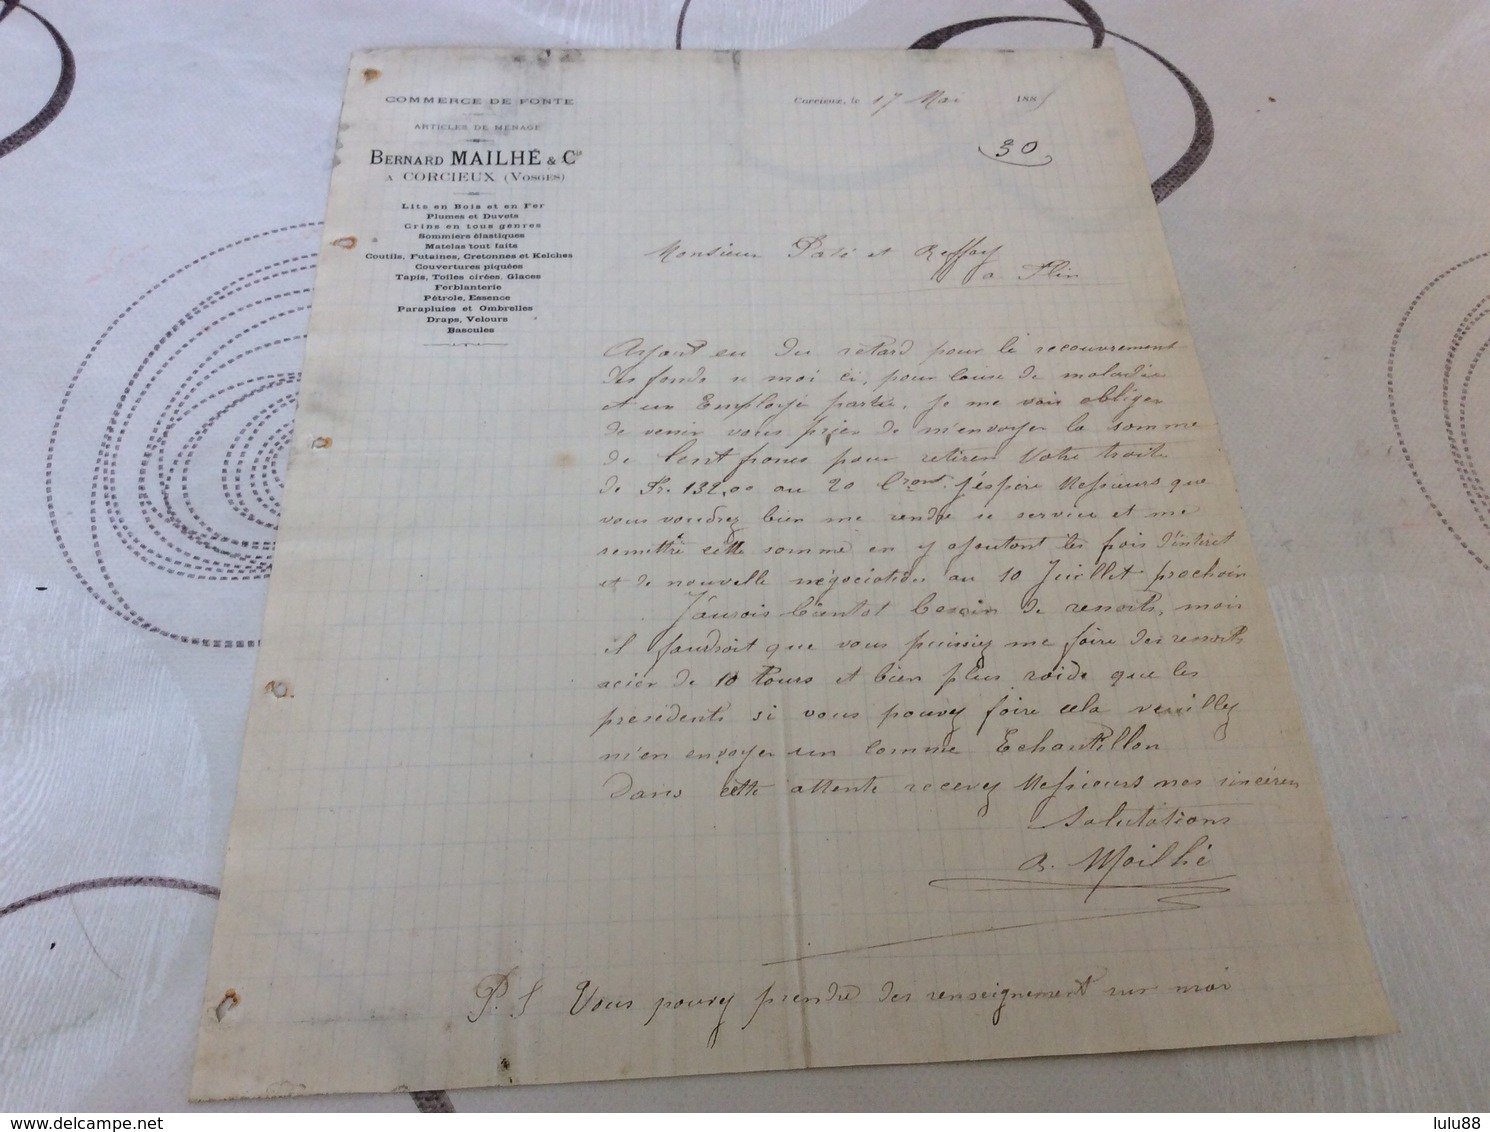 COMMERCE DE FONTE
ARTICLES DE MÉNAGE
BERNARD MAILHÉ & Cie
A CORCIEUX (VOSGES)
Lits en Bois et en Fer
Plumes et Duvets
Crins en tous genres
Sommiers élastiques
Matelas tout faits
Coutils, Futaines, Cretonnes et Kelches
Couvertures piquées
Tapis, Toiles cirées, Glaces
Ferblanterie
Pétrole, Essence
Parapluies et Ombrelles
Draps, Velours
Bascules
Corcieux, le 17 Mai 188
30
Monsieur et
a Flin
Ayant eu du retard pour le recouvrement
des fonds se moi ci, pour cause de maladie
et un Employé partie, je me vois obliger
de venir vous prier de m'envoyer la somme
de Cent francs pour retirer Votre traite
de Fr. 132,00 au 20 Cront. J'éspère Messieurs que
vous voudrez bien me rendre se service et me
remettre cette somme en y ajoutant les frais d'intéret
et de nouvelle négociation au 10 Juillet prochain
J'aurais bientot besoin de ressorts, mais
il faudrait que vous puissiez me faire des ressorts
acier de 10 Tours et bien plus roide que les
présédents si vous pouvez faire cela veuillez
m'en envoyer un comme Echantillon
Dans cette attente recevez Messieurs nos sincères
Salutations
B. Mailhé
P. S Vous pouvez prendre des renseignement sur moi
delcampe.net
lulu88